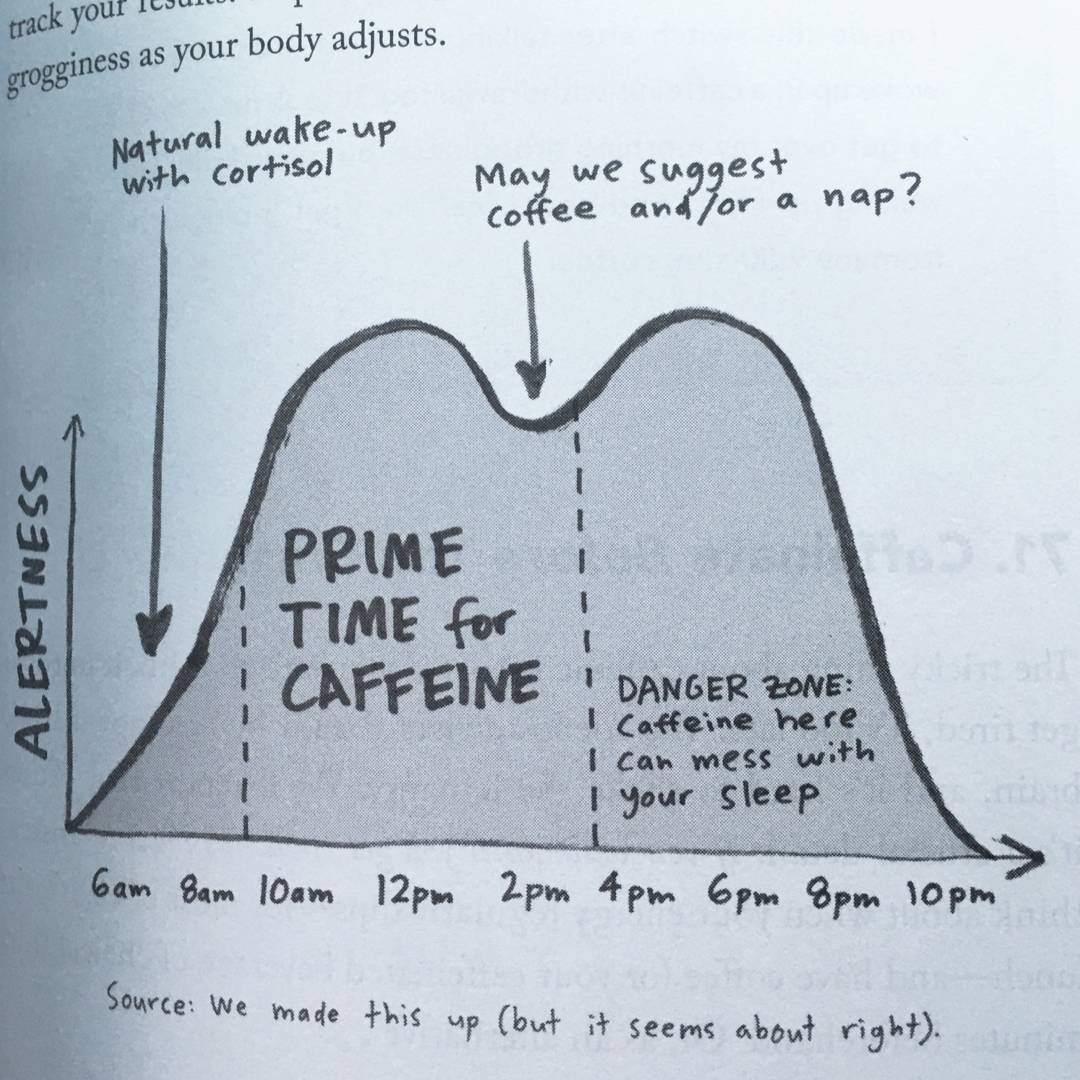 track your results.
grogginess as your body adjusts.
Natural wake-up
with cortisol
May we suggest
coffee and/or a nap?
ALERTNESS
PRIME
TIME for
CAFFEINE
DANGER ZONE:
Caffeine here
can mess with
your sleep
6am 8am 10am 12pm 2pm 4pm 6pm 8pm 10pm
Source: We made this up (but it seems about right).
71. Caffeinate Before